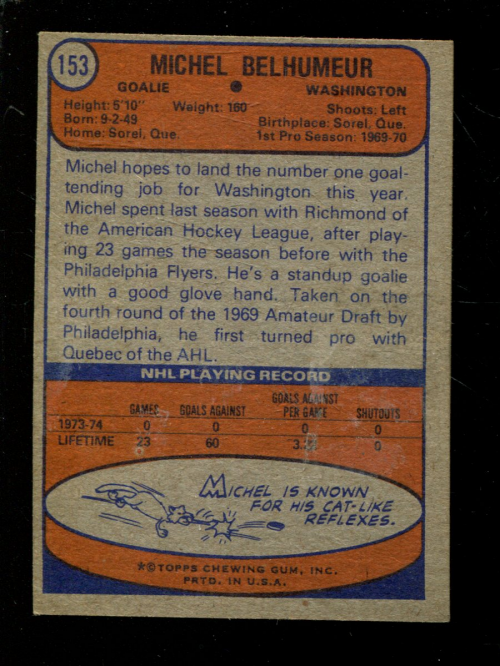 153
MICHEL BELHUMEUR
GOALIE WASHINGTON
Height: 5'10" Weight: 160 Shoots: Left
Born: 9-2-49 Birthplace: Sorel, Que.
Home: Sorel, Que. 1st Pro Season: 1969-70
Michel hopes to land the number one goal-
tending job for Washington this year.
Michel spent last season with Richmond of
the American Hockey League, after play-
ing 23 games the season before with the
Philadelphia Flyers. He's a standup goalie
with a good glove hand. Taken on the
fourth round of the 1969 Amateur Draft by
Philadelphia, he first turned pro with
Quebec of the AHL.
NHL PLAYING RECORD
GAMES GOALS AGAINST GOALS AGAINST PER GAME SHUTOUTS
1973-74 0 0 0 0
LIFETIME 23 60 0
MICHEL IS KNOWN
FOR HIS CAT-LIKE
REFLEXES.
*©TOPPS CHEWING GUM, INC.
PRTD. IN U.S.A.